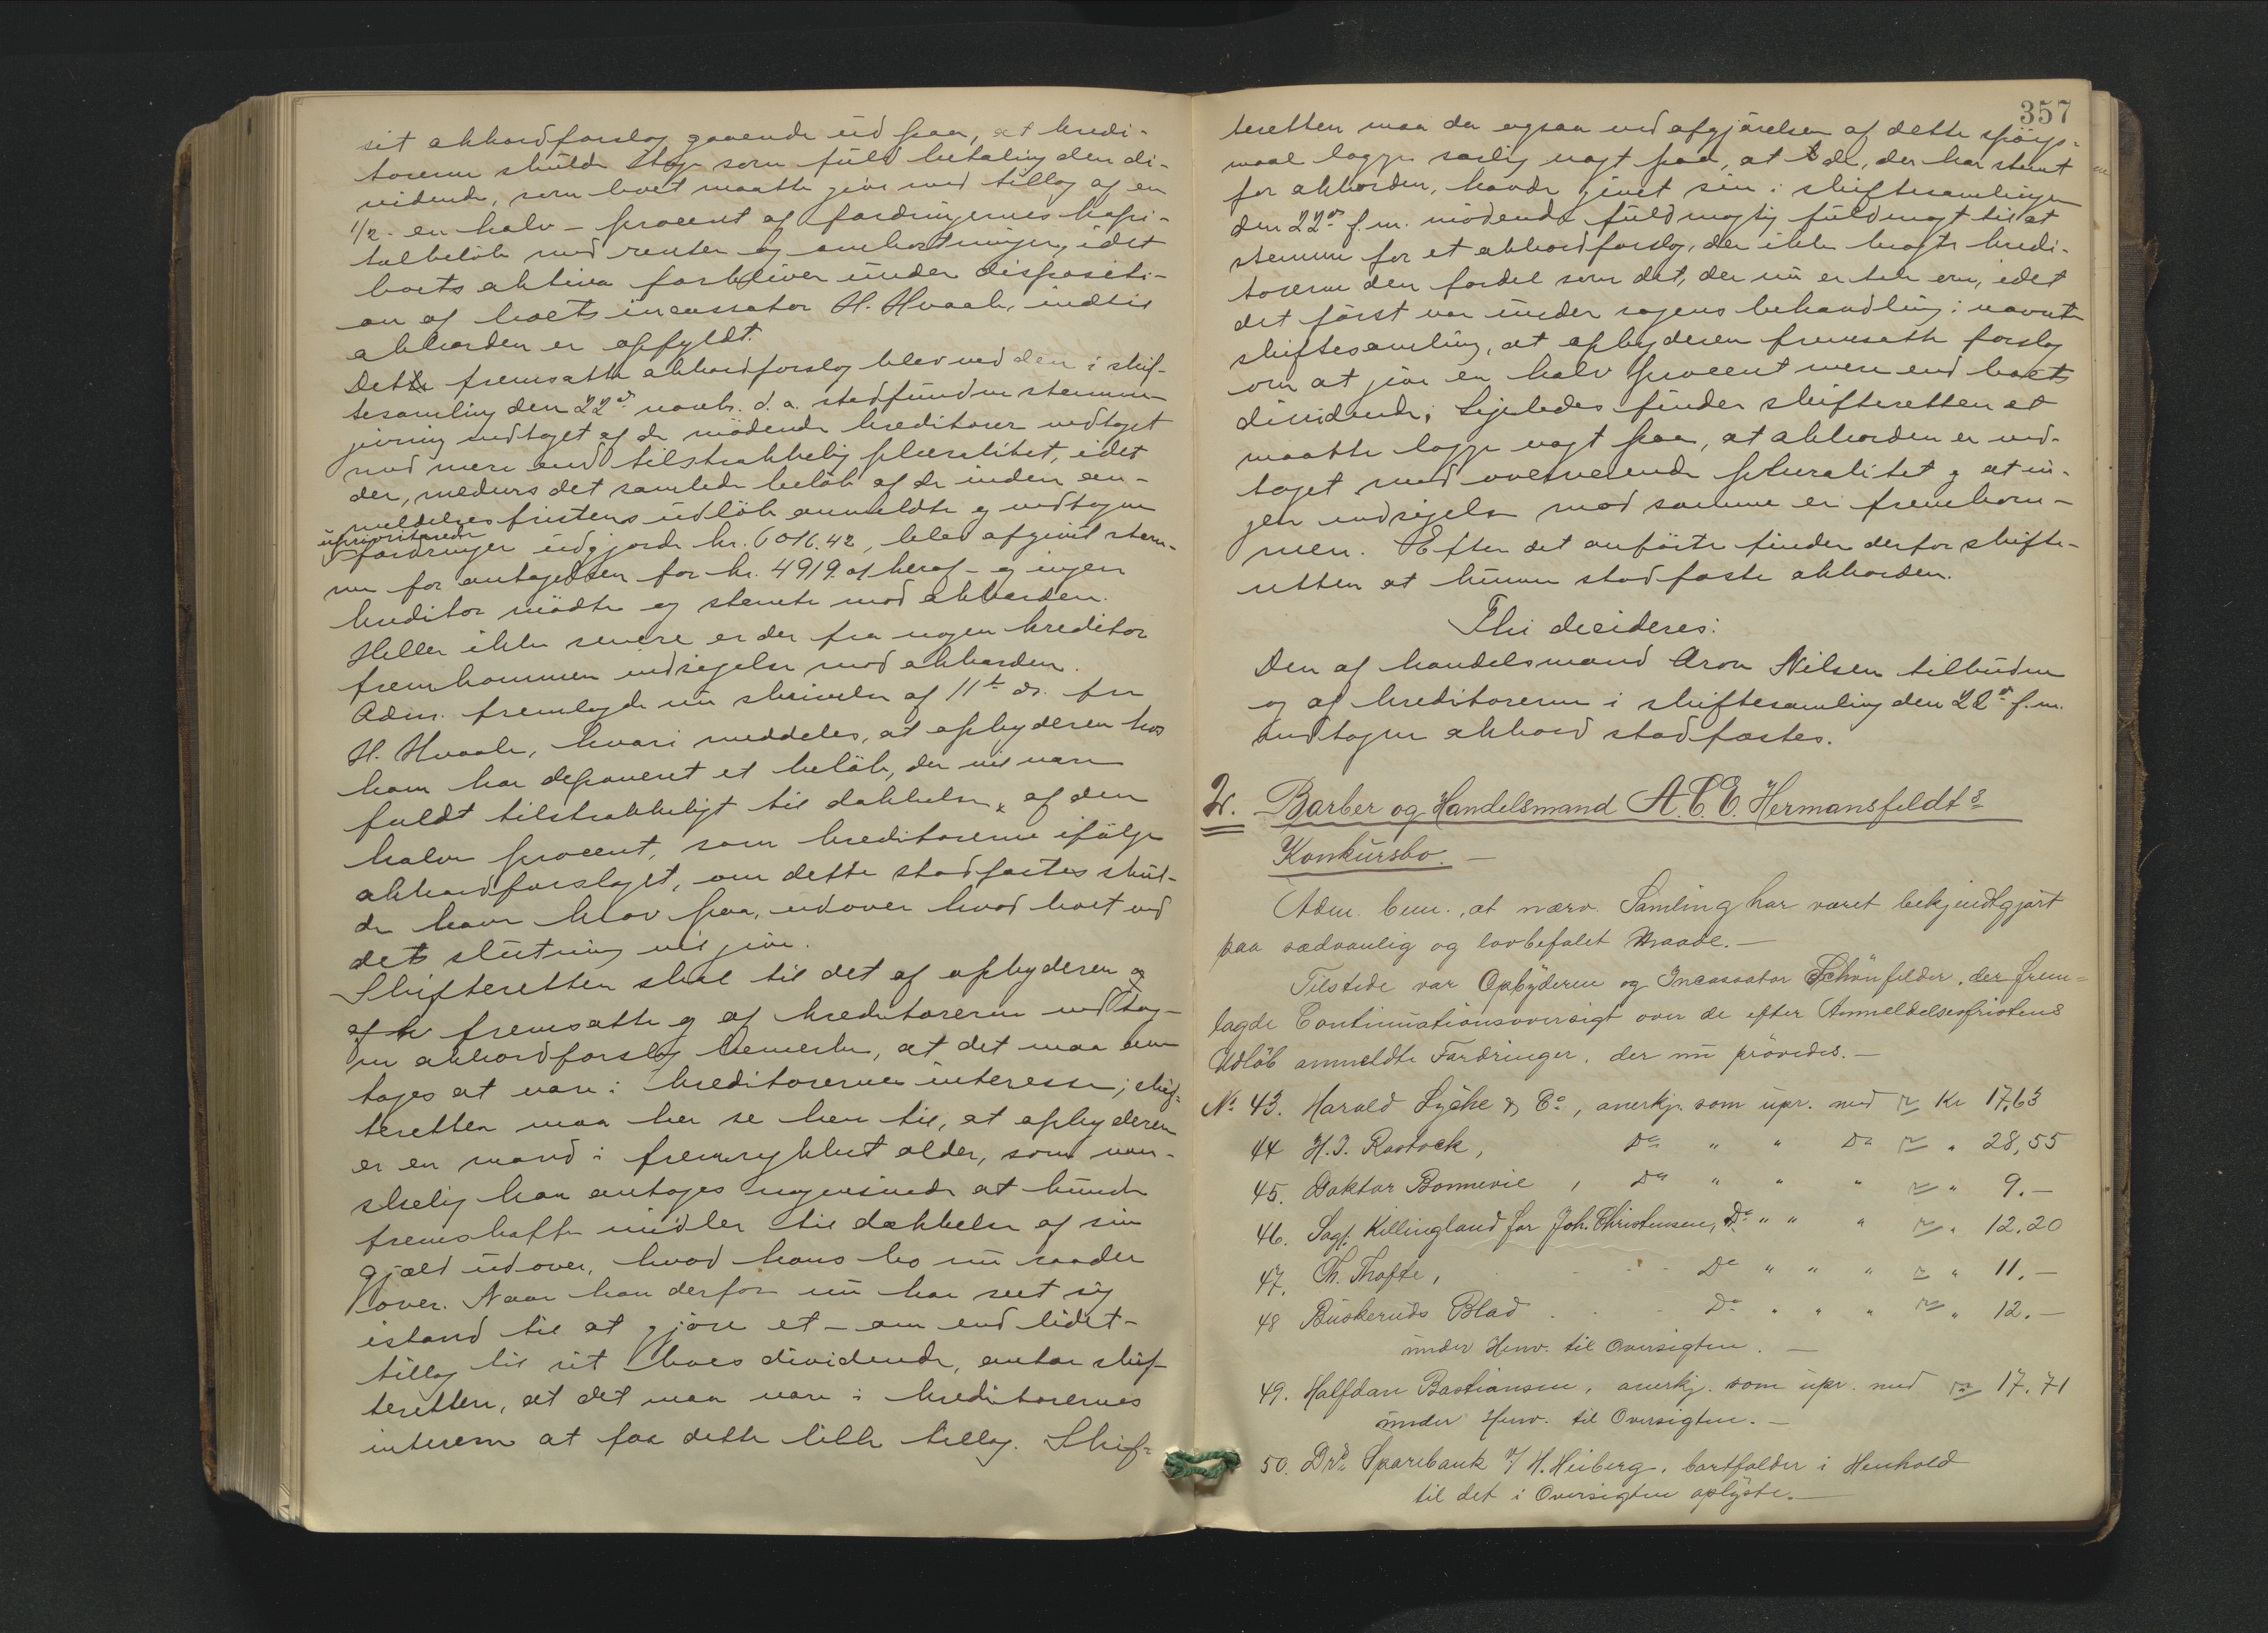 sit akkordforslag gaaende ud paa, at kredi-
torerne skulde tage som fuld betaling den di-
vidende, som boet maatte give med tillæg af en
1/2 - en halv - procent af fordringernes kapi-
talbeløb med renter og omkostninger, idet
boets aktiva forbliver under dispositi-
on af boets incassator H. Hvaale, indtil
akkorden er opfyldt.
Dette fremsatte akkordforslag blev ved den i skif-
tesamling den 22de novbr. d. a. stedfundne stemme-
givning vedtaget af de mødende kreditorer vedtaget
med mere end tilstrækkelig pluralitet, idet
der, medens det samlede beløb af de inden an-
meldelsesfristens udløb anmeldte og vedtagne
uprioriterede
fordringer udgjorde kr. 6016.42, blev afgivet stem-
me for antagelsen for kr. 4919. af heraf - og ingen
kreditor mødte og stemte mod akkorden.
Heller ikke senere er der fra nogen kreditor
fremkommen indsigelse mod akkorden.
Adm. fremlagde nu skrivelse af 11te ds. fra
H. Hvaale, hvori meddeles, at opbyderen hos
ham har deponeret et beløb, der vil være
fuldt tilstrækkeligt til dækkelse af den
halve procent, som kreditorerne ifølge
akkordforslaget, om dette stadfæstes skul-
de have krav paa, udover hvad boet ved
dets slutning vil give.
Skifteretten skal til det af opbyderen og
af fremsatte og af kreditorerne vedtag-
ne akkordforslag bemerke, at det maa an-
tages at være i kreditorernes interesse; skif-
teretten maa her se hen til, at opbyderen
er en mand i fremrykket alder, som van-
skelig kan antages nogensinde at kunde
fremskaffe midler til dækkelse af sin
gjæld udover, hvad hans bo nu raader
over. Naar han derfor nu har seet sig
istand til at gjøre et - om end lidet -
tillæg til sit boes dividende, antar skif-
teretten, at det maa være i kreditorernes
interesse at faa dette lille tillæg. Skif-
357
teretten maa da ogsaa ved afgjørelsen af dette spørgs-
maal lægge særlig vægt paa, at de, der har stemt
for akkorden, havde givet sin i skiftesamlingen
den 22de f.m. mødende fuldmægtig fuldmagt til at
stemme for et akkordforslag, der ikke bragte kredi-
torerne den fordel som det, der nu er tale om, idet
det først var under sagens behandling i nævnte
skiftesamling, at opbyderen fremsatte forslag
om at give en halv procent mere end boets
dividende; Ligeledes finder skifteretten at
maatte lægge vægt paa, at akkorden er ved-
taget med overveiende pluralitet og at in-
gen indsigelse mod samme er fremkom-
men. Efter det anførte finder derfor skifte-
retten at kunne stadfæste akkorden.
Thi decideres:
Den af handelsmand Aron Nilsen tilbudne
og af kreditorerne i skiftesamling den 22de f.m.
vedtagne akkord stadfæstes.
2. Barber og Handelsmand A. C. E. Hermansfeldts
Konkursbo. —
Adm. bem., at nærv. Samling har været bekjendtgjørt
paa sædvanlig og lovbefalet Maade. —
Tilstede var Opbyderen og Incassator Schönfelder, der frem=
lagde Continuationsoversigt over de efter Anmeldelsesfristens
Udløb anmeldte Fordringer, der nu prøvedes. —
No 43. Harald Lyche & Co, anerkj. som upr. med Kr 17,63
44 H. J. Rastock, Do " " Do " 28,55
45. Doktor Bonnevie, Do " " " " 9. —
46. Sagf. Killingland for Joh. Christensen, Do " " " " 12.20
47. Th. Thofte, Do " " " " 11. —
48 Buskeruds Blad Do " " " " 12. —
under Henv. til Oversigten. —
49. Halfdan Bastiansen, anerkj. som upr. med 17.71
under Henv. til Oversigten. —
50. Drs Sparebank v/ H. Heiberg, bortfalder i Henhold
til det i Oversigten oplyste. —